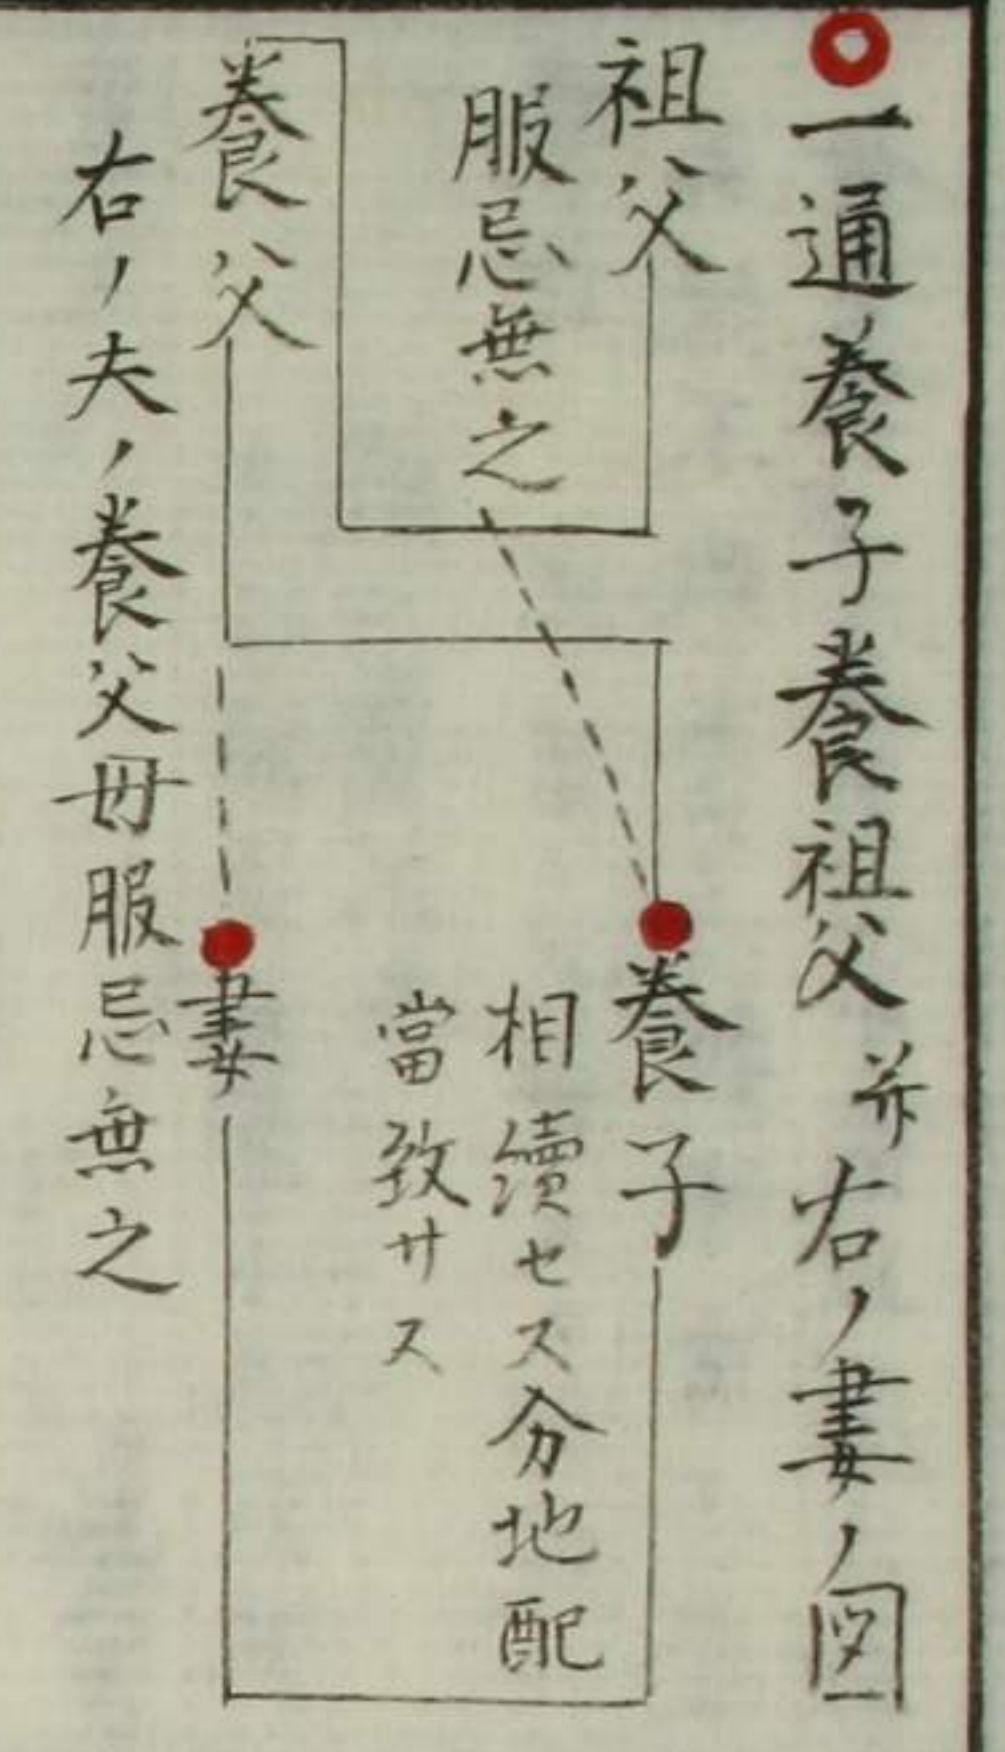 一通養子養祖父并右ノ妻ノ図
祖父
服忌無之
養父
養子
相續セス分地配
當致サス
妻
右ノ夫ノ養父母服忌無之